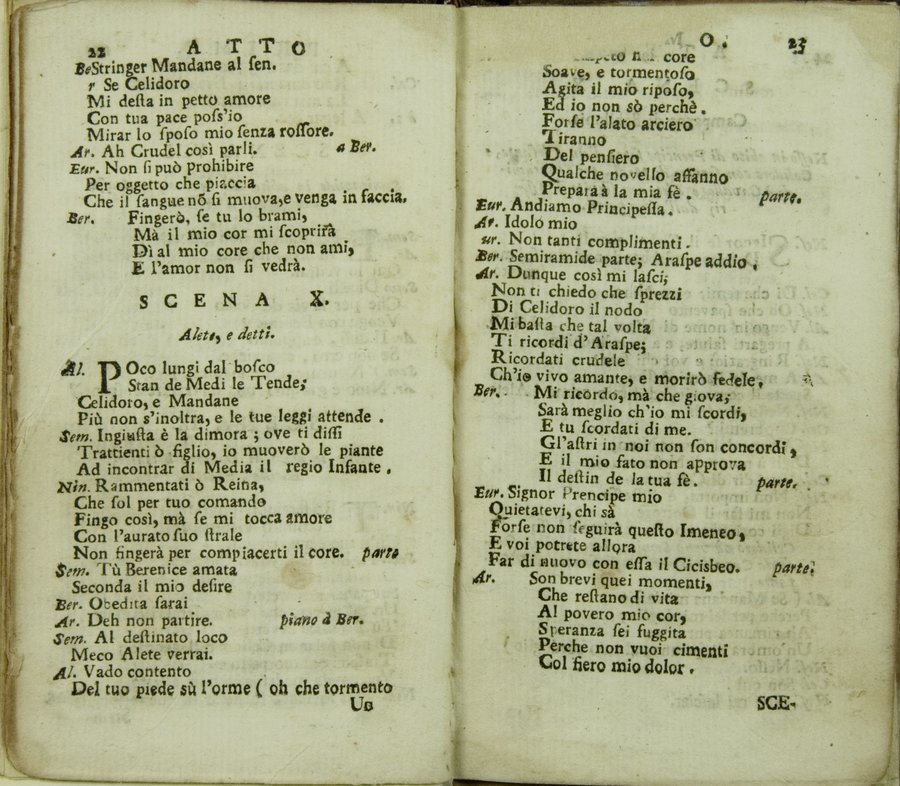 22 ATTO
Be Stringer Mandane al ſen.
r Se Celidoro
Mi deſta in petto amore
Con tua pace poſs'io
Mirar lo ſpoſo mio ſenza roſſore.
Ar. Ah Crudel così parli. a Ber.
Eur. Non ſi può prohibire
Per oggetto che piaccia
Che il ſangue nõ ſi muova, e venga in faccia.
Ber. Fingerò, ſe tu lo brami,
Mà il mio cor mi ſcoprirà
Dì al mio core che non ami,
E l'amor non ſi vedrà.
SCENA X.
Alete, e detti.
Al. POco lungi dal boſco
Stan de Medi le Tende;
Celidoro, e Mandane
Più non s'inoltra, e le tue leggi attende.
Sem. Ingiuſta è la dimora; ove ti diſſi
Trattienti ò figlio, io muoverò le piante
Ad incontrar di Media il regio Infante.
Nin. Rammentati ò Reina,
Che ſol per tuo comando
Fingo così, mà ſe mi tocca amore
Con l'aurato ſuo ſtrale
Non fingerà per compiacerti il core. parte
Sem. Tù Berenice amata
Seconda il mio deſire
Ber. Obedita ſarai
Ar. Deh non partire. piano à Ber.
Sem. Al deſtinato loco
Meco Alete verrai.
Al. Vado contento
Del tuo piede sù l'orme ( oh che tormento
Un
O. 23
core
Soave, e tormentoſo
Agita il mio ripoſo,
Ed io non sò perchè.
Forſe l'alato arciero
Tiranno
Del penſiero
Qualche novello affanno
Prepara à la mia fè. parte.
Eur. Andiamo Principeſſa.
Ar. Idolo mio
ur. Non tanti complimenti.
Ber. Semiramide parte; Araſpe addio.
Ar. Dunque così mi laſci;
Non ti chiedo che ſprezzi
Di Celidoro il nodo
Mi baſta che tal volta
Ti ricordi d'Araſpe;
Ricordati crudele
Ch'io vivo amante, e morirò fedele.
Ber. Mi ricordo, mà che giova;
Sarà meglio ch'io mi ſcordi,
E tu ſcordati di me.
Gl'aſtri in noi non ſon concordi,
E il mio fato non approva
Il deſtin de la tua fè. parte.
Eur. Signor Prencipe mio
Quietatevi, chi sà
Forſe non ſeguirà queſto Imeneo,
E voi potrete allora
Far di nuovo con eſſa il Cicisbeo. parte.
Ar. Son brevi quei momenti,
Che reſtano di vita
Al povero mio cor,
Speranza ſei fuggita
Perche non vuoi cimenti
Col fiero mio dolor.
SCE-